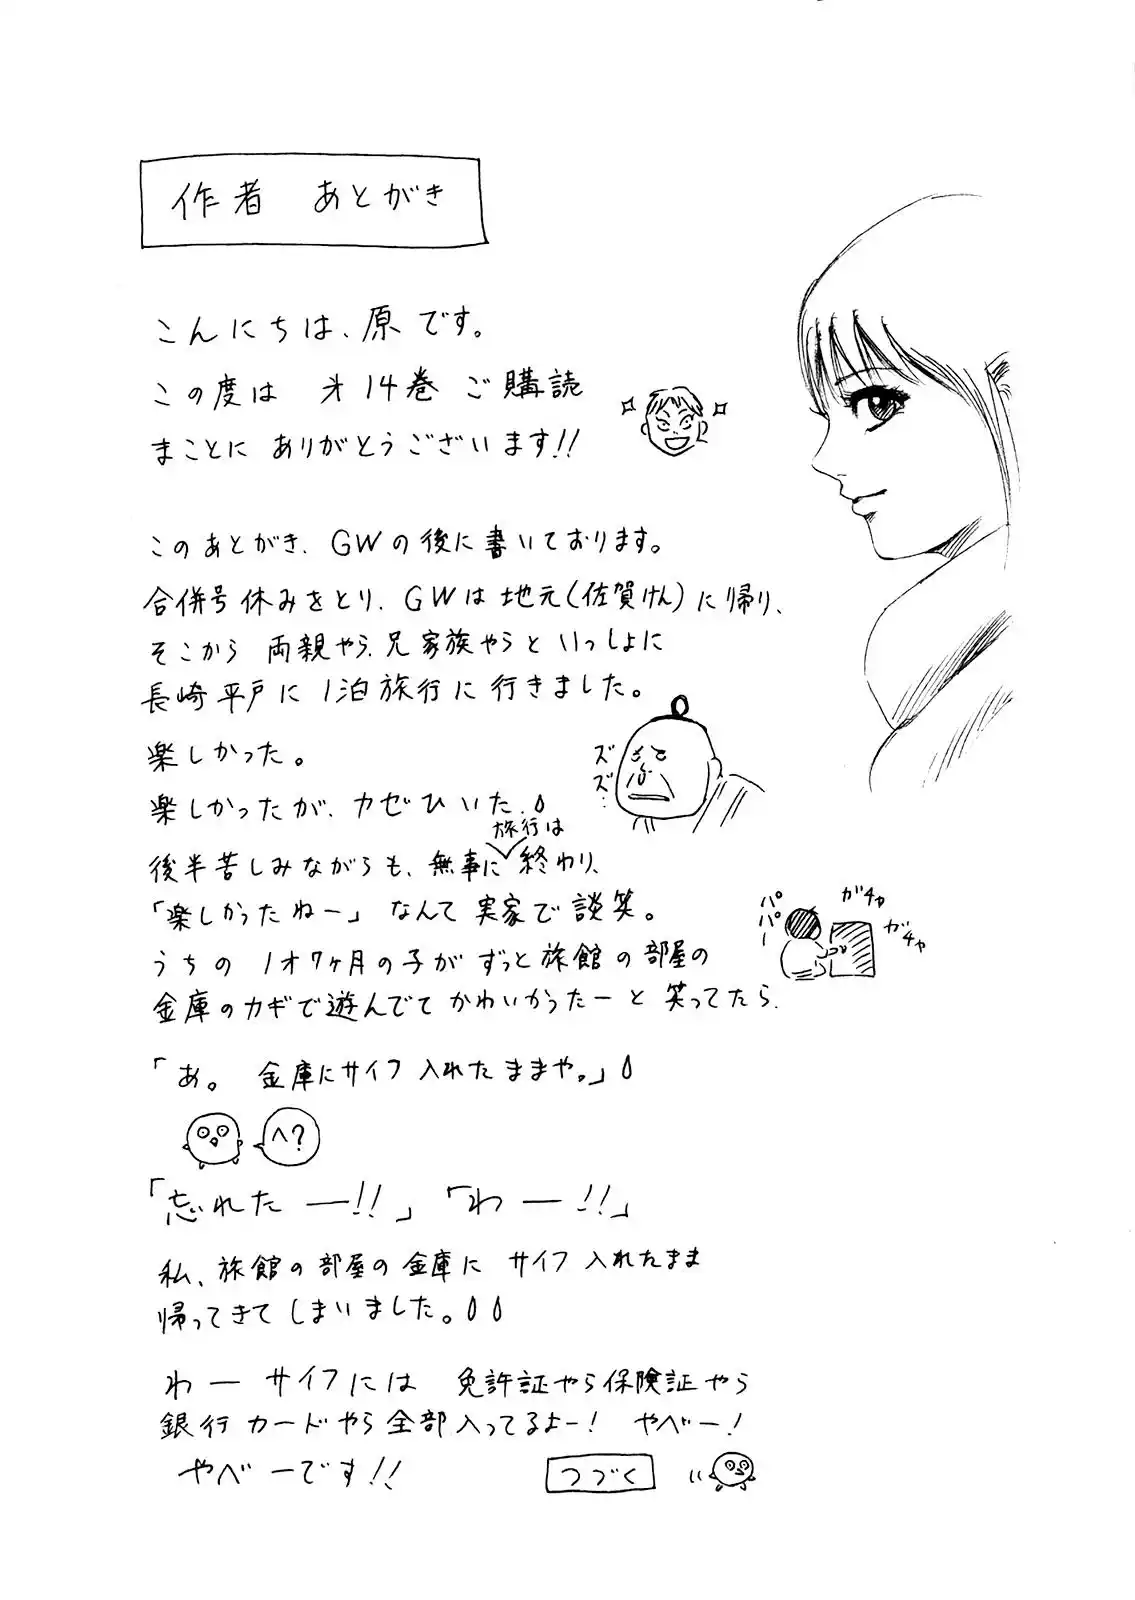 作者 あとがき
こんにちは、原です。
この度は 才14巻 ご購読
まことに ありがとうございます!!
このあとがき、GWの後に書いております。
合併号休みをとり、GWは地元(佐賀けん)に帰り、
そこから 両親やら、兄家族やらと いっしょに
長崎平戸に 1泊旅行に行きました。
楽しかった。
ズズ…
楽しかったが、カゼひいた。
旅行は
後半苦しみながらも、無事に終わり、
「楽しかったねー」なんて実家で談笑。
パパー
ガチャ
ガチャ
うちの 1才7ヶ月の子が ずっと旅館の部屋の
金庫のカギで遊んでて かわいかったーと 笑ってたら、
「あ。 金庫にサイフ入れたままや。」
へ?
「忘れたー!!」「わー!!」
私、旅館の部屋の金庫に サイフ入れたまま
帰ってきてしまいました。
わー サイフには 免許証やら保険証やら
銀行カードやら全部入ってるよー! やべー!
やべーです!!
つづく